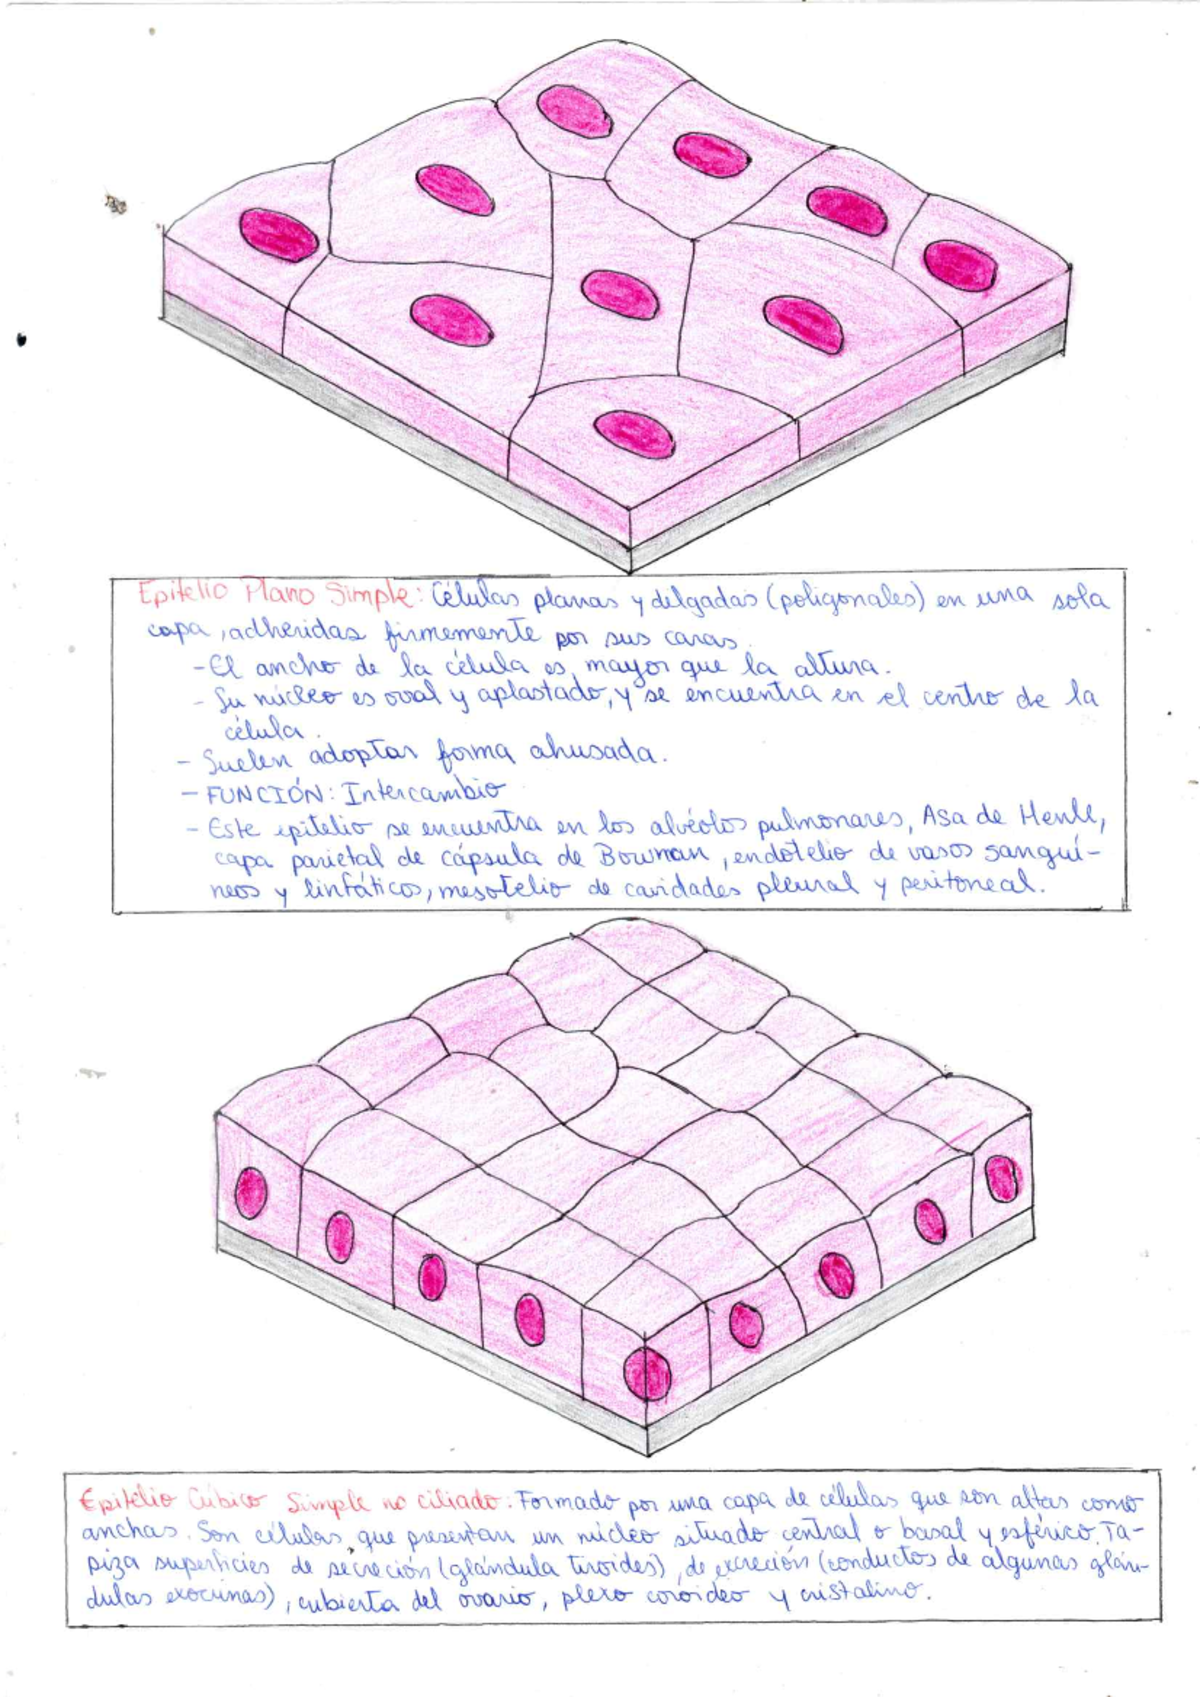 Epitelio Plano Simple: Células planas y delgadas (poligonales) en una sola
capa, adheridas firmemente por sus caras.
-El ancho de la célula es mayor que la altura.
- Su núcleo es oval y aplastado, y se encuentra en el centro de la
célula.
- Suelen adoptar forma ahusada.
- FUNCIÓN: Intercambio
- Este epitelio se encuentra en los alvéolos pulmonares, Asa de Henle,
capa parietal de cápsula de Bowman, endotelio de vasos sanguí-
neos y linfáticos, mesotelio de cavidades pleural y peritoneal.
Epitelio Cúbico Simple no ciliado: Formado por una capa de células que son altas como
anchas. Son células que presentan un núcleo situado central o basal y esférico. Ta-
piza superficies de secreción (glándula tiroides), de excreción (conductos de algunas glán-
dulas exocrinas), cubierta del ovario, plexo coroideo y cristalino.